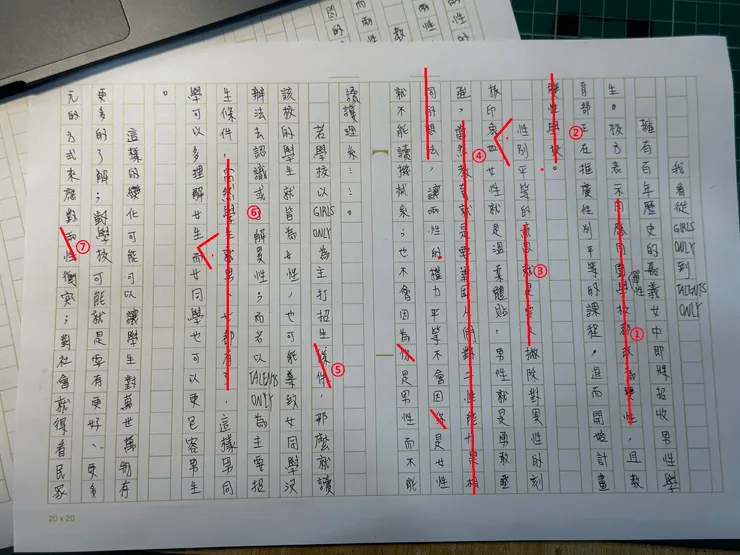 我看從GIRLS ONLY到TALENTS ONLY
擁有百年歷史的嘉義女中即將招收男性學
生。校方表示因應周圍單性學校都改為雙性，且教
育部正在推廣性別平等的課程，進而開始計畫
雙性學校。
性別平等的意思就是人撤除對異性的刻
板印象女性就是溫柔體貼，男性就是勇敢堅
強，當然教育就是要人們對二性能相
同的想法，讓兩性的權力平等不會因你是女性
就不能讀機械系；也不會因為你是男性而不能
讀護理系……。
若學校以GIRLS ONLY為主打招生條件，那麼就讀
該校的學生就皆為女性，也可能導致女同學沒
辦法去認識或了解異性；而若以TALENTS ONLY為主要招
生條件，當然學生就男女都有了，這樣男同
學可以多理解女生而女同學也可以更包容男生
。
這樣的變化可能可以讓學生對萬世萬物有
更多的了解；對學校可能就是要有更好、更多
元的方式來應對兩性衝突；對社會就得看民眾
①
②
③
④
⑤
⑥
⑦
20 x 20